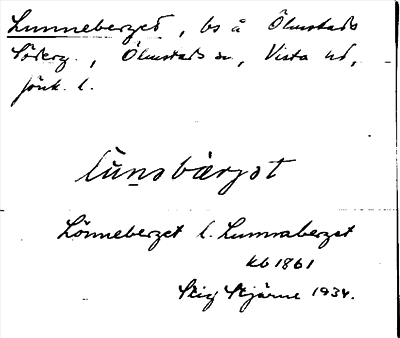 Lunneberget, bs å Ölmstads
Söderg., Ölmstads sn, Vista hd,
Jönk. l.
lùnəbærjət
Lönneberget l. Lunnaberget
kb 1861
Stig Stjärne 1934.